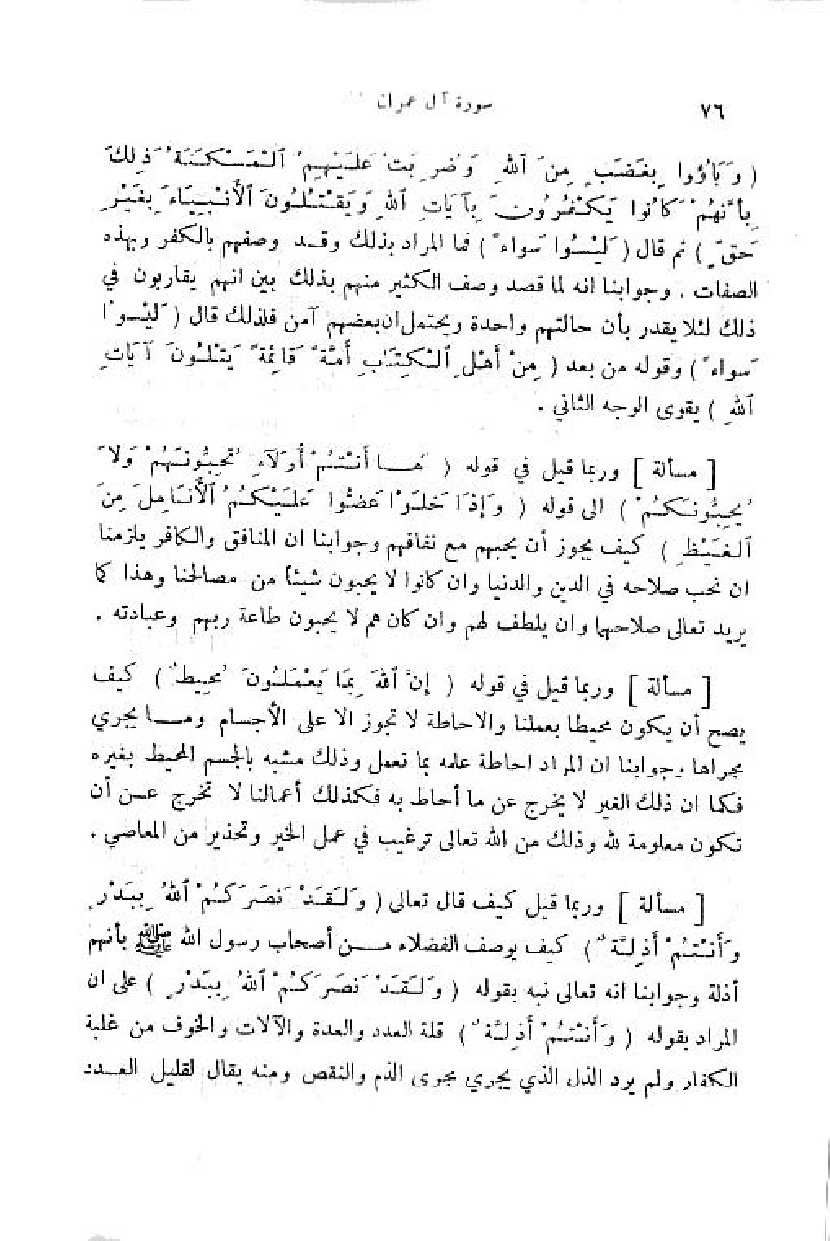 ٧٦
سورة آل عمران
( وَبَاؤُوا بِغَضَبٍ مِنَ اللهِ وَضُرِبَتْ عَلَيْهِمُ الْمَسْكَنَةُ ذٰلِكَ
بِأَنَّهُمْ كَانُوا يَكْفُرُونَ بِآيَاتِ اللهِ وَيَقْتُلُونَ الْأَنْبِيَاءَ بِغَيْرِ
حَقٍّ ) ثم قال ( لَيْسُوا سَواءً ) فما المراد بذلك وقد وصفهم بالكفر وبهذه
الصفات . وجوابنا انه لما قصد وصف الكثير منهم بذلك بين انهم يقاربون في
ذلك لئلا يقدر بأن حالتهم واحدة ويحتمل ان بعضهم آمن فلذلك قال ( لَيْسُوا
سَواءً ) وقوله من بعد ( مِنْ أَهْلِ الْكِتَابِ أُمَّةٌ قَائِمَةٌ يَتْلُونَ آيَاتِ
اللهِ ) يقوى الوجه الثاني .
[ مسألة ] وربما قيل في قوله ( هَا أَنْتُمْ أُولَاءِ تُحِبُّونَهُمْ وَلَا
يُحِبُّونَكُمْ ) الى قوله ( وَإِذَا خَلَوْا عَضُّوا عَلَيْكُمُ الْأَنَامِلَ مِنَ
الْغَيْظِ ) كيف يجوز أن يحبهم مع نفاقهم وجوابنا ان المنافق والكافر يلزمنا
ان نحب صلاحه في الدين والدنيا وان كانوا لا يحبون شيئا من مصالحنا وهذا كما
يريد تعالى صلاحهما وان يلطف لهم وان كان هم لا يحبون طاعة ربهم وعبادته .
[ مسألة ] وربما قيل في قوله ( إِنَّ اللهَ بِمَا يَعْمَلُونَ مُحِيطٌ ) كيف
يصح أن يكون محيطا بعملنا والاحاطة لا تجوز الا على الأجسام وما يجري
مجراها وجوابنا ان المراد احاطة علمه بما تعمل وذلك مشبه بالجسم المحيط بغيره
فكما ان ذلك الغير لا يخرج عن ما أحاط به فكذلك أعمالنا لا تخرج عن أن
تكون معلومة لله وذلك من الله تعالى ترغيب في عمل الخير وتحذير من المعاصي .
[ مسألة ] وربما قيل كيف قال تعالى ( وَلَقَدْ نَصَرَكُمُ اللهُ بِبَدْرٍ
وَأَنْتُمْ أَذِلَّةٌ ) كيف يوصف الفضلاء من أصحاب رسول الله ﷺ بأنهم
أذلة وجوابنا انه تعالى نبه بقوله ( وَلَقَدْ نَصَرَكُمُ اللهُ بِبَدْرٍ ) على ان
المراد بقوله ( وَأَنْتُمْ أَذِلَّةٌ ) قلة العدد والعدة والآلات والخوف من غلبة
الكفار ولم يرد الذل الذي يجري مجرى الذم والنقص ومنه يقال لقليل العدد